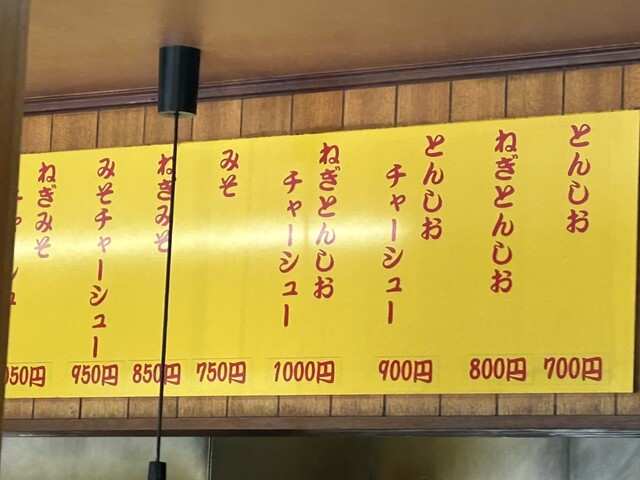 とんしお
700円
ねぎとんしお
800円
とんしお
チャーシュー
900円
ねぎとんしお
チャーシュー
1000円
みそ
750円
ねぎみそ
850円
みそチャーシュー
950円
ねぎみそ
050円